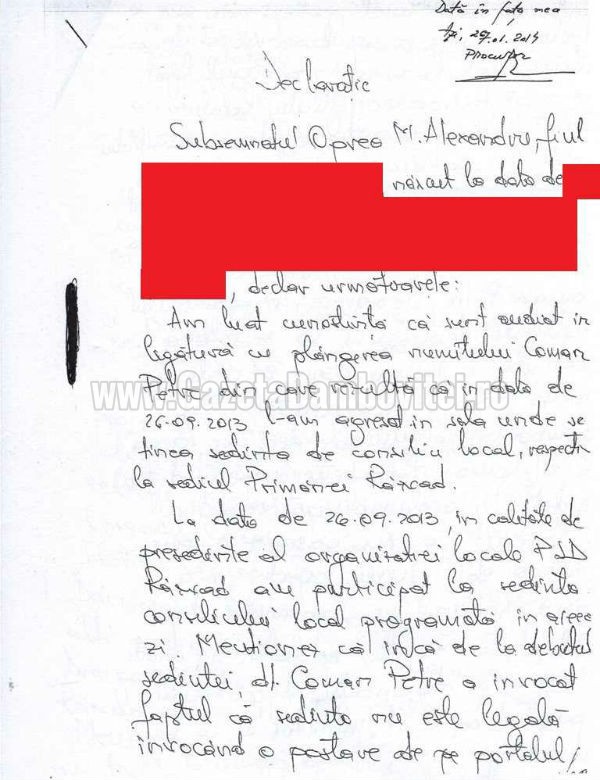 Dată în fața mea
azi, 29.01.2014
Procuror
Declaratie
Subsemnatul Oprea M. Alexandru, fiul
născut la data de
, declar următoarele:
Am luat cunostinta că sunt audiat in
legătură cu plângerea numitului Coman
Petre din care rezultă că in data de
www.GazetaDambovitei.ro
26.09.2013 l-am agresat in sala unde se
tinea sedinta de consiliu local, respectiv
la sediul Primăriei Răzvad.
La data de 26.09.2013, in calitate de
presedinte al organizatiei locale PSD
Răzvad am participat la sedinta
consiliului local programată in aceea
zi. Mentionez că încă de la debutul
sedintei, dl. Coman Petre a invocat
faptul că sedinta nu este legală
invocând o postare de pe portalul